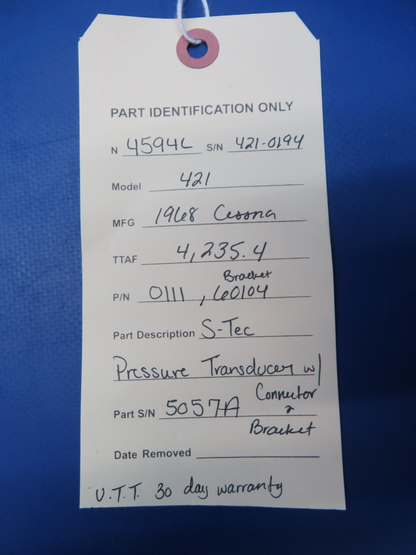 PART IDENTIFICATION ONLY
N 4594L S/N 421-0194
Model 421
MFG 1968 Cessna
TTAF 4,235.4
Bracket
P/N 0111, 60104
Part Description S-Tec
Pressure Transducer w/
Connector
Part S/N 5057A &
Bracket
Date Removed
U.T.T. 30 day warranty